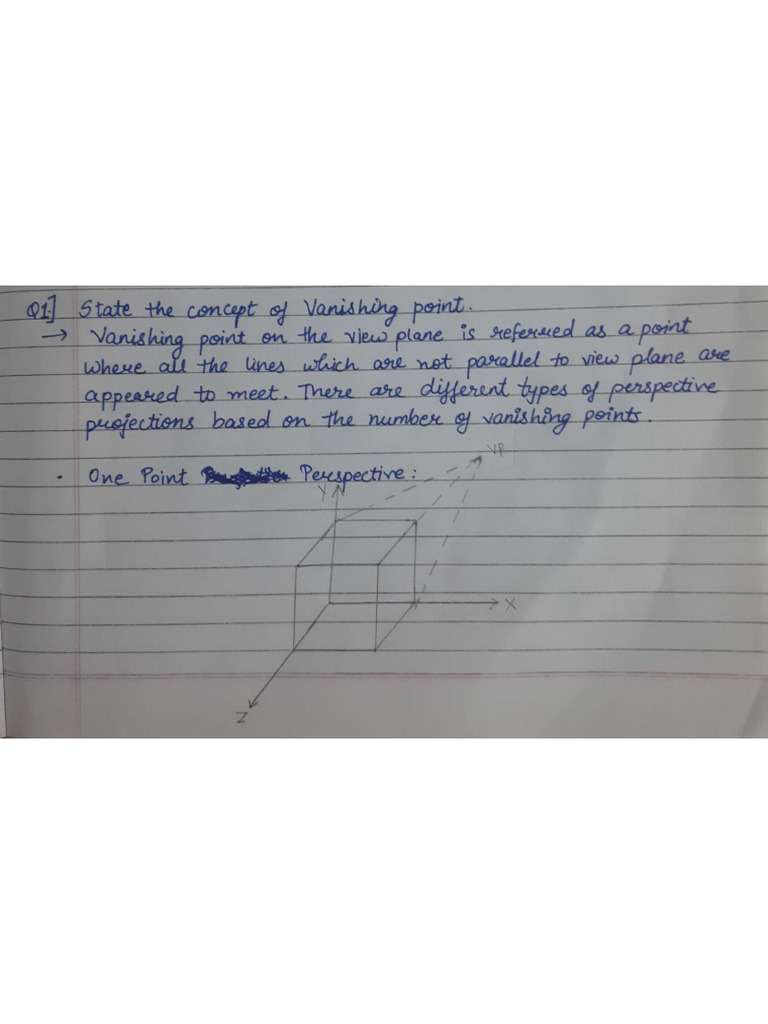 Q1.] State the concept of Vanishing point.
→ Vanishing point on the view plane is referred as a point
where all the lines which are not parallel to view plane are
appeared to meet. There are different types of perspective
projections based on the number of vanishing points.
VP
• One Point Perspective:
Y
X
Z